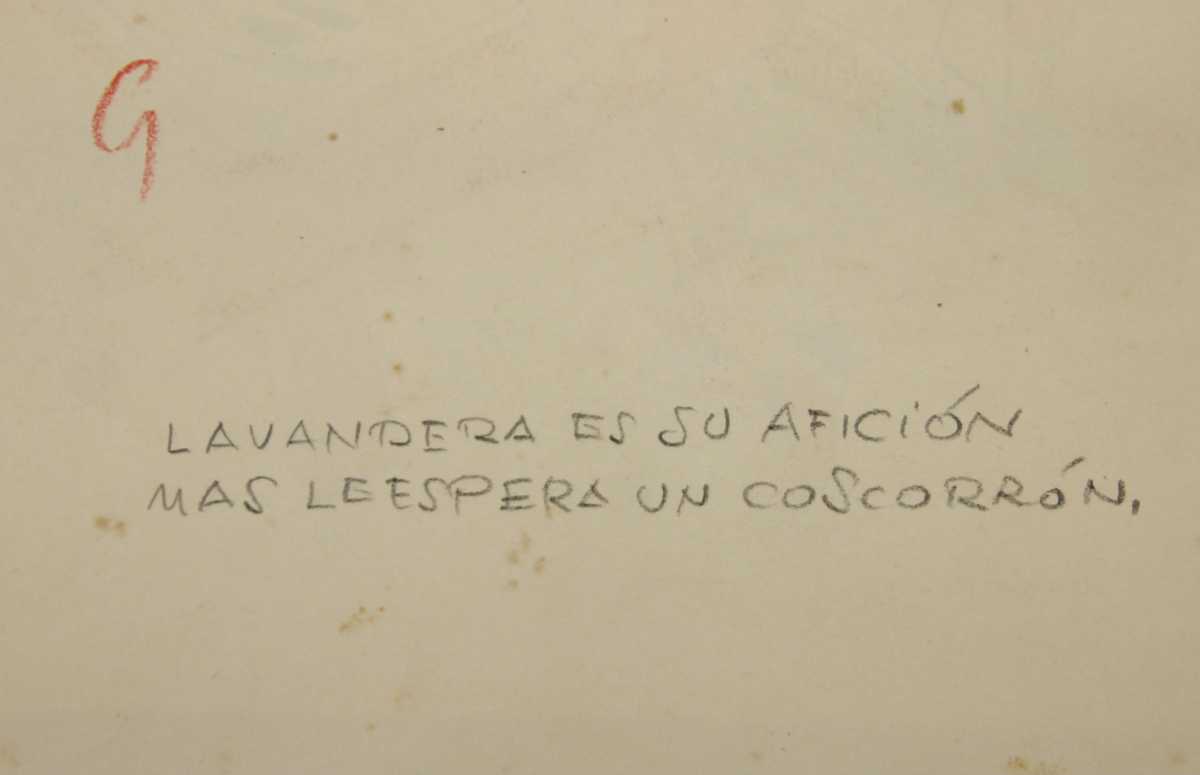 G
LAVANDERA ES SU AFICIÓN
MAS LE ESPERA UN COSCORRÓN.